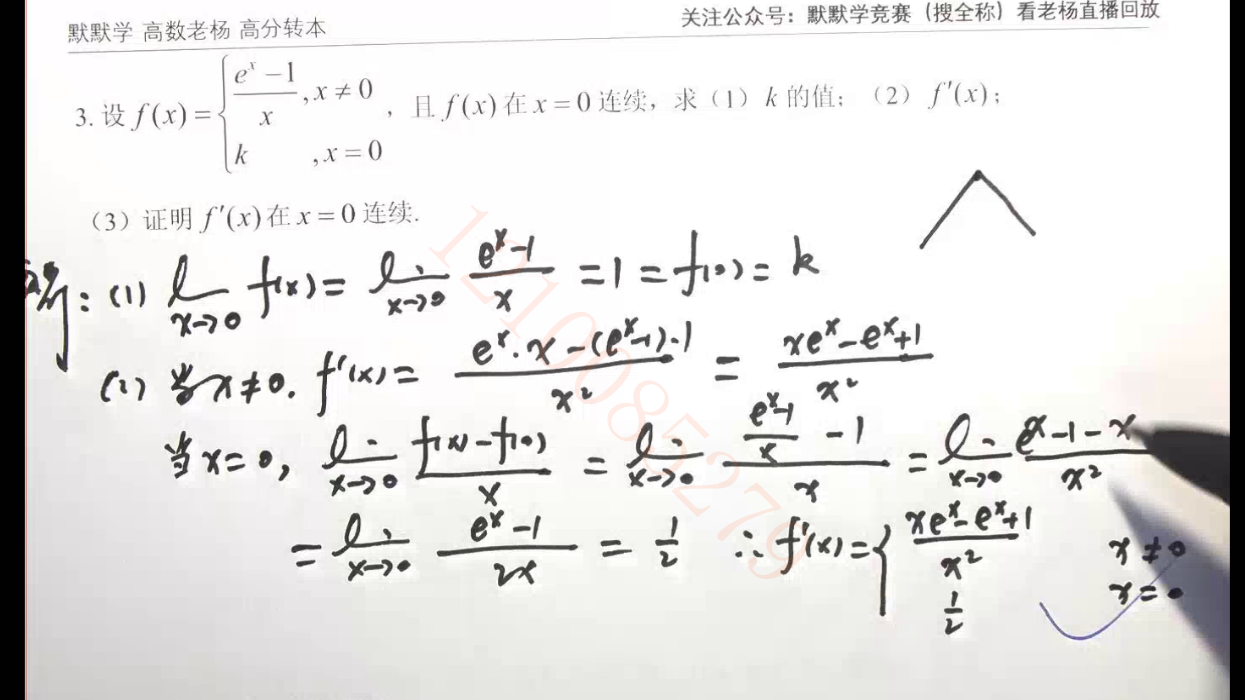 默默学 高数老杨 高分转本
关注公众号：默默学竞赛（搜全称）看老杨直播回放
3. 设 f(x) = { (e^x − 1)/x , x ≠ 0 ; k , x = 0 ，且 f(x) 在 x = 0 连续，求（1）k 的值；（2）f′(x)；
（3）证明 f′(x) 在 x = 0 连续.
解：(1) lim_{x→0} f(x) = lim_{x→0} (e^x − 1)/x = 1 = f(0) = k
(2) 当 x ≠ 0. f′(x) = (e^x · x − (e^x − 1) · 1)/x² = (xe^x − e^x + 1)/x²
当 x = 0, lim_{x→0} (f(x) − f(0))/x = lim_{x→0} ((e^x − 1)/x − 1)/x = lim_{x→0} (e^x − 1 − x)/x²
= lim_{x→0} (e^x − 1)/2x = 1/2 ∴ f′(x) = { (xe^x − e^x + 1)/x² x ≠ 0 ; 1/2 x = 0
1210085279